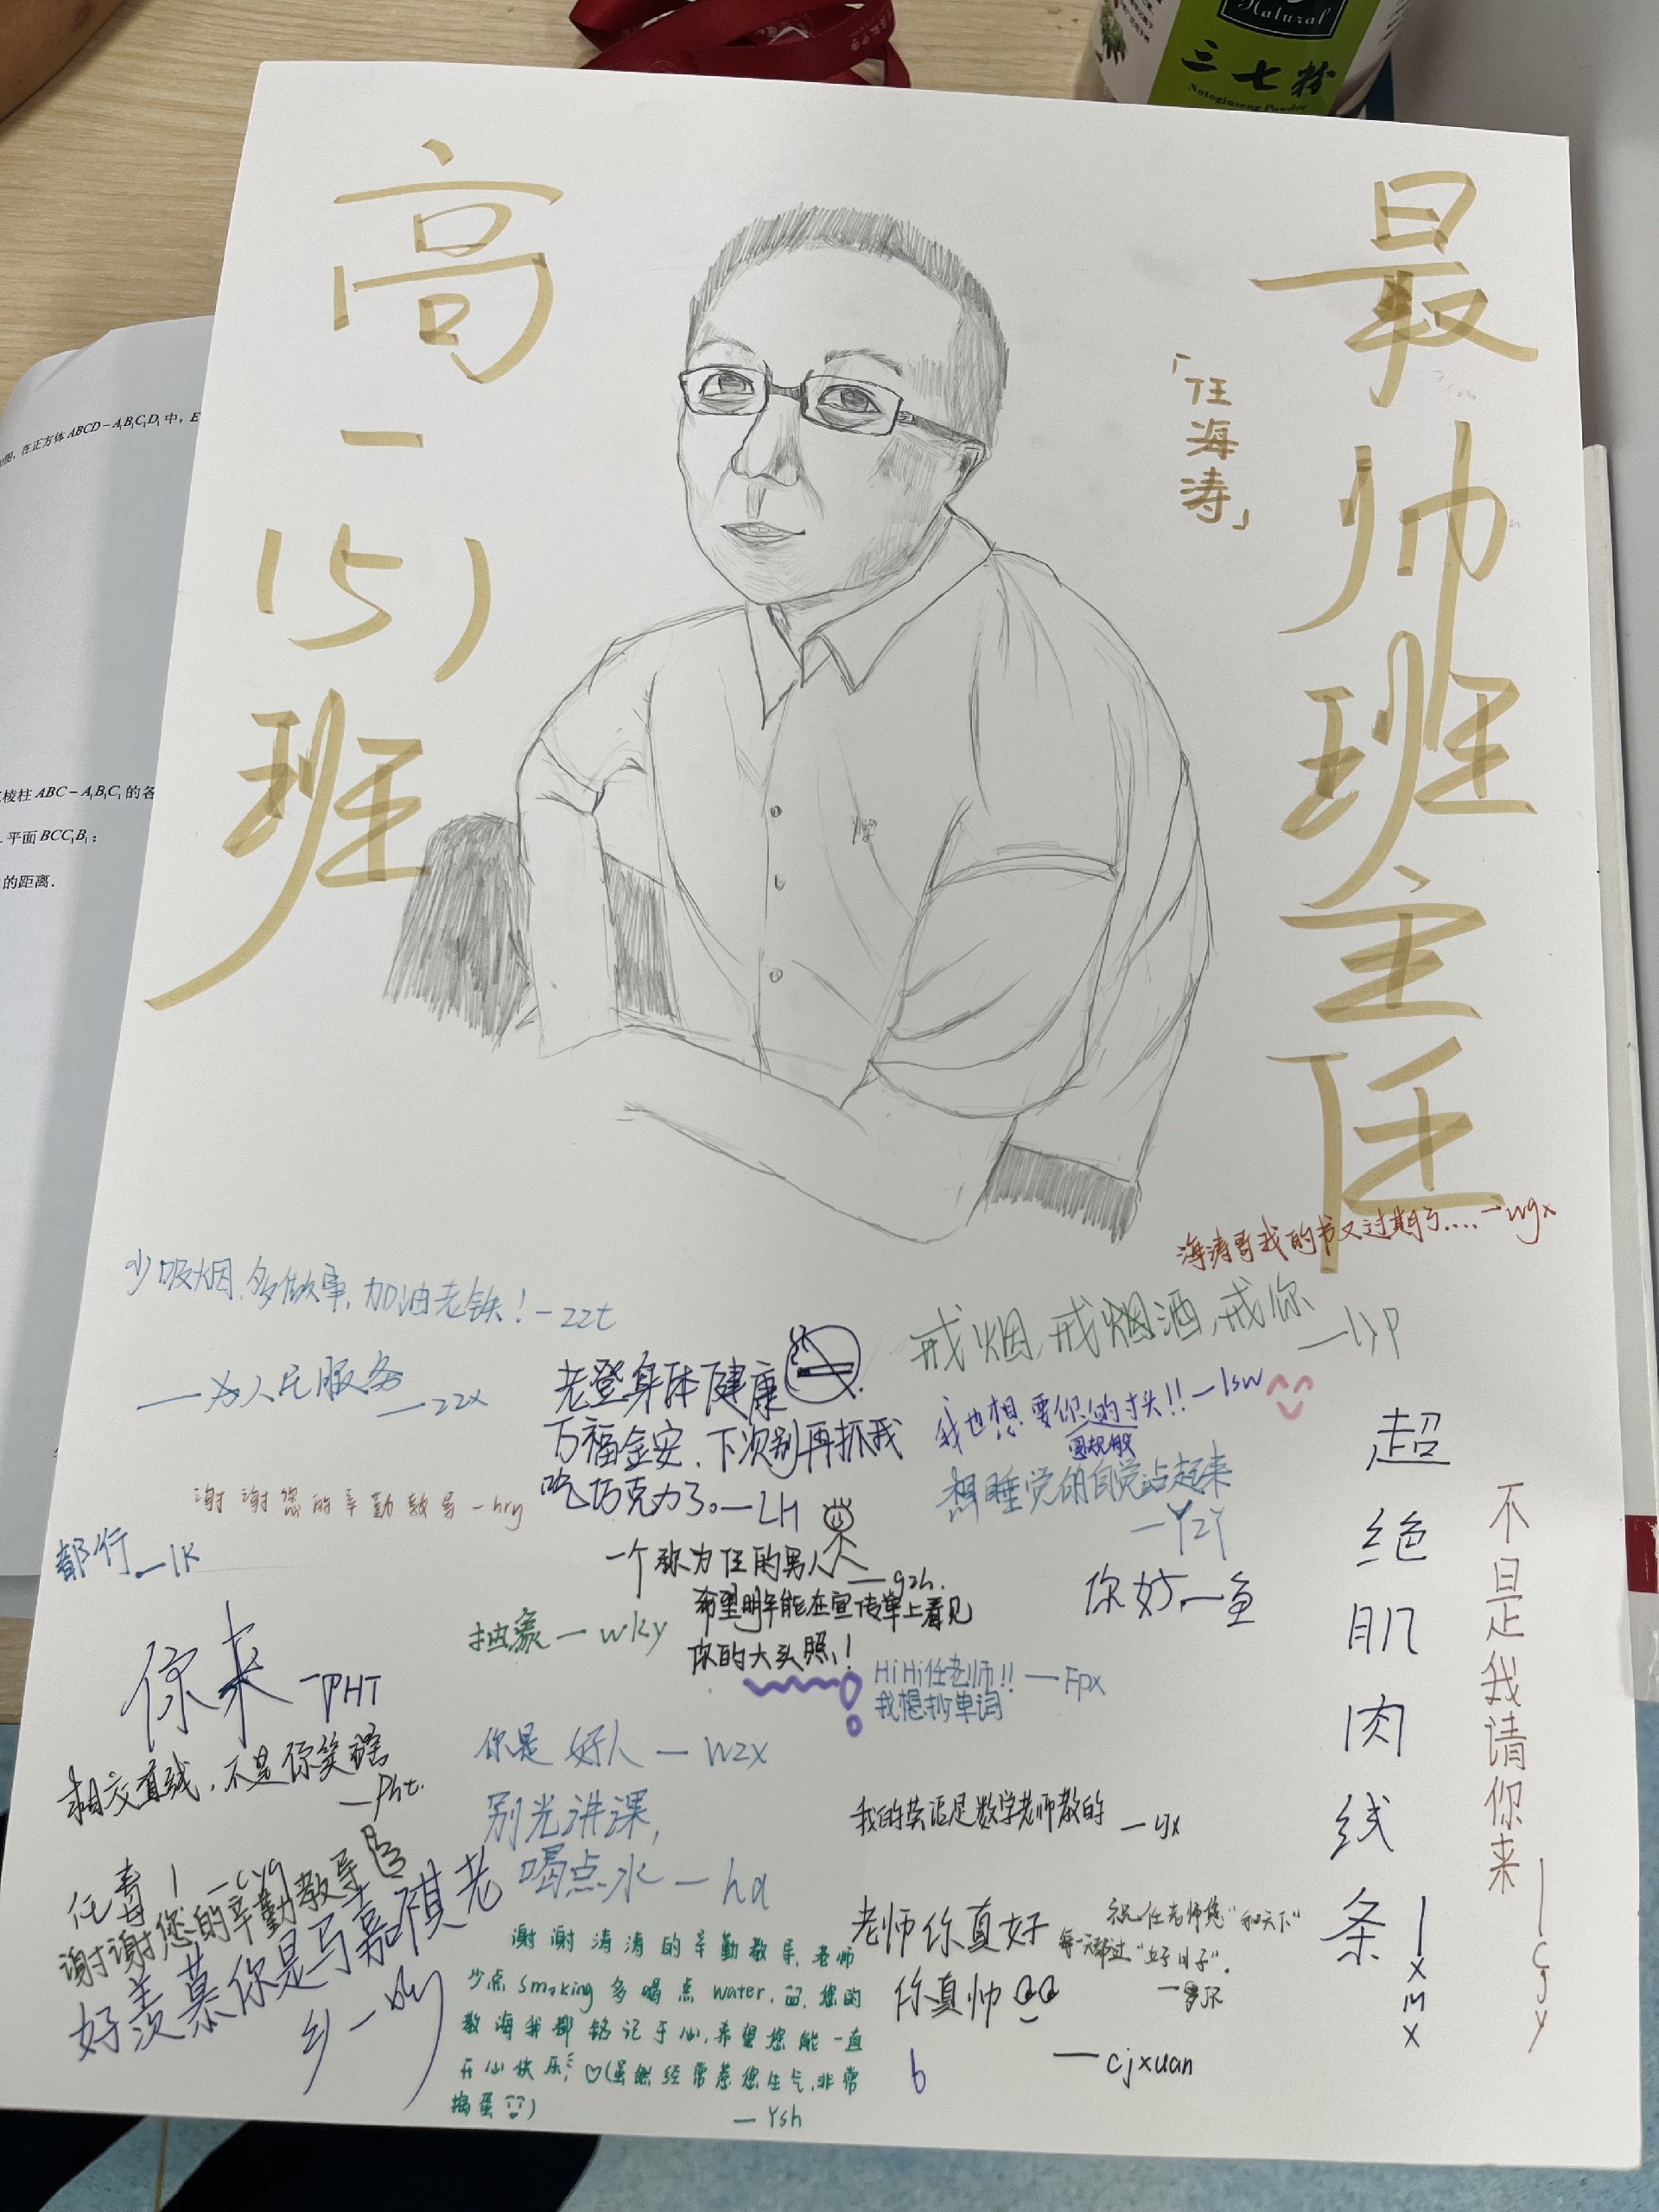 Natural
三七粉
Notoginseng Powder
高一(5)班
最帅班主任
「任海涛」
如图，在正方体ABCD-A₁B₁C₁D₁中，E
棱柱ABC-A₁B₁C₁的各
平面BCC₁B₁；
的距离.
海涛哥我的书又过期了....-wgx
少吸烟,多做事,加油老铁！-zzt
戒烟,戒烟酒,戒你—lyp
—为人民服务—zzx
老登身体健康
万福金安.下次别再抓我
吃巧克力了。—LH
我也想要你的寸头!!—lsw
圆规般
想睡觉的自觉站起来
—YZY
谢谢您的辛勤教导-hry
都行—lk
一个称为任的男人—gzh.
希望明年能在宣传单上看见
你的大头照!
你好—鱼
抽象—wky
你来—PHT
HiHi任老师!!—Fpx
我想抄单词
相交直线,不是你笑啥
—Pht.
你是好人—wzx
别光讲课,
喝点水—ha
我的英语是数学老师教的—yx
任青！—cyq
谢谢您的辛勤教导
好羡慕你是马嘉祺老
乡—
谢谢涛涛的辛勤教导,老师
少点smoking多喝点water,您的
教海我都铭记于心,希望您能一直
开心快乐!♡(虽然经常惹您生气,非常
捣蛋)
—Ysh
老师你真好
你真帅
—cjxuan
祝任老师您"和天下"
每一天都过"好日子".
6
超绝肌肉线条—xmx
不是我请你来—cjy